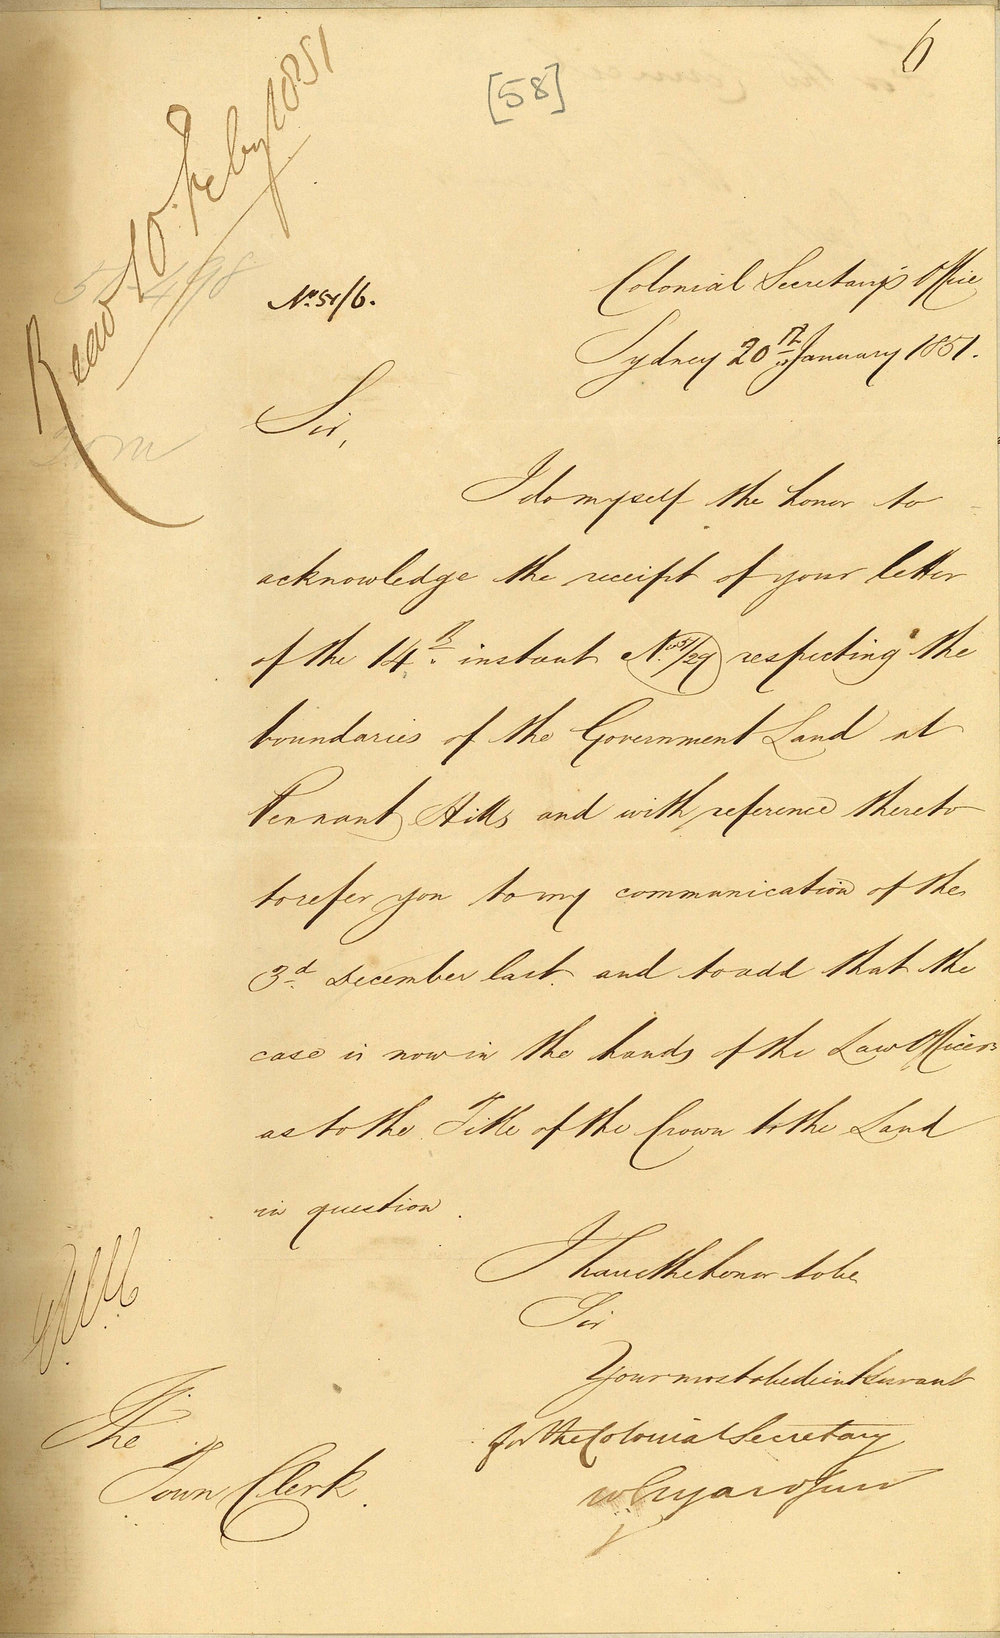 6
[58]
Read 10 Feby 1851
No. 51/6.
Colonial Secretary's Office
Sydney 20th January 1851.
Sir,
I do myself the honor to
acknowledge the receipt of your letter
of the 14th instant No. 51/29 respecting the
boundaries of the Government Land at
Pennant Hills and with reference thereto
to refer you to my communication of the
3d December last and to add that the
case is now in the hands of the Law Officers
as to the Title of the Crown to the Land
in question.
I have the honor to be
Sir
Your most obedient Servant
for the Colonial Secretary
The
Town Clerk